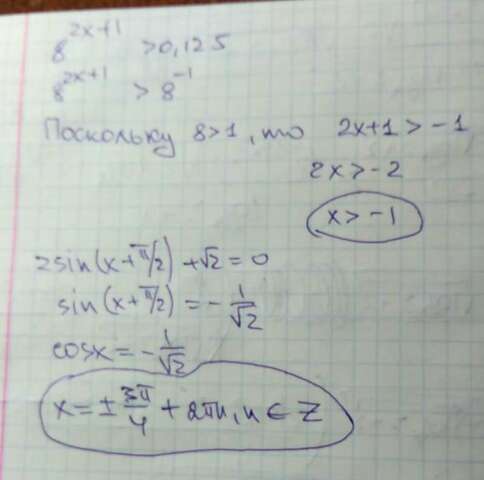 8^{2x+1} >0,125
8^{2x+1} > 8^{-1}
Поскольку 8>1, то 2x+1 > -1
2x > -2
x > -1
2sin(x+π/2) + √2 = 0
sin(x+π/2) = - 1/√2
cosx = - 1/√2
x = ± 3π/4 + 2πn, n ∈ Z